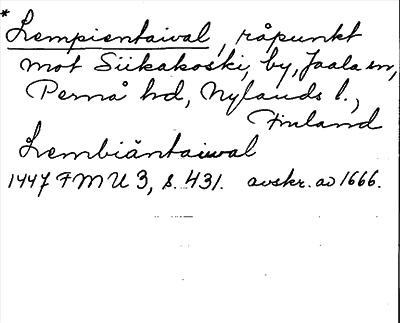 *Lempientaival, råpunkt
mot Siikakoski, by, Jaala sn,
Pernå hd, Nylands l.,
Finland
Lembiäntaiwal
1447 FMU 3, s. 431. avskr. av 1666.